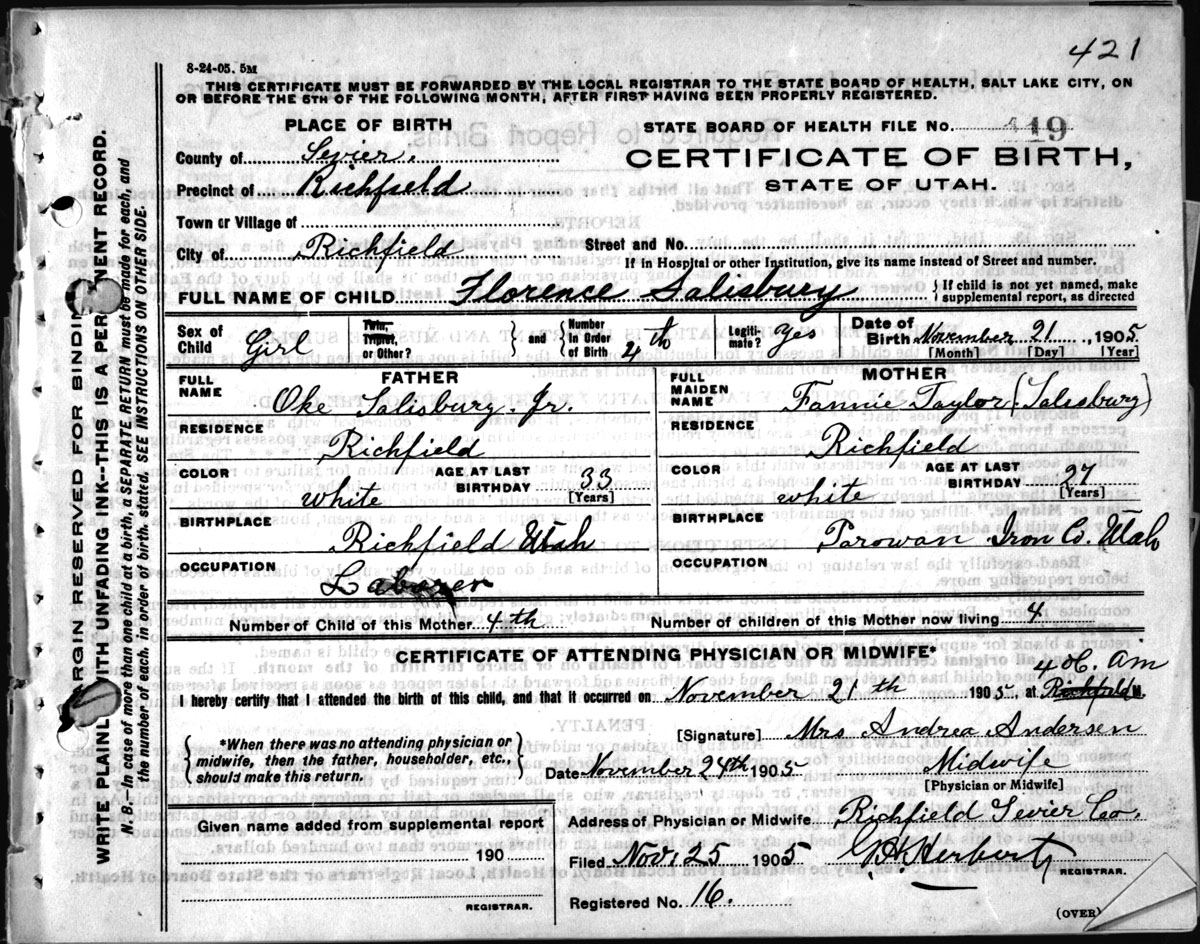 421
8-24-05. 5M
THIS CERTIFICATE MUST BE FORWARDED BY THE LOCAL REGISTRAR TO THE STATE BOARD OF HEALTH, SALT LAKE CITY, ON
OR BEFORE THE 5TH OF THE FOLLOWING MONTH, AFTER FIRST HAVING BEEN PROPERLY REGISTERED.
PLACE OF BIRTH
STATE BOARD OF HEALTH FILE No. 119
County of Sevier.
CERTIFICATE OF BIRTH,
Precinct of Richfield
STATE OF UTAH.
Town or Village of
City of Richfield
Street and No.
If in Hospital or other Institution, give its name instead of Street and number.
FULL NAME OF CHILD Florence Salisbury } If child is not yet named, make supplemental report, as directed
Sex of Child Girl Twin, Triplet, or Other? } and { Number in Order of Birth 4th Legiti-mate? Yes Date of Birth November 21, 1905
[Month] [Day] [Year]
FATHER
MOTHER
FULL NAME Oke Salisbury Jr.
FULL MAIDEN NAME Fannie Taylor (Salisbury)
RESIDENCE Richfield
RESIDENCE Richfield
COLOR white AGE AT LAST BIRTHDAY 33 [Years]
COLOR white AGE AT LAST BIRTHDAY 27 [Years]
BIRTHPLACE Richfield Utah
BIRTHPLACE Parowan Iron Co. Utah
OCCUPATION Laborer
OCCUPATION
Number of Child of this Mother 4th Number of children of this Mother now living 4
CERTIFICATE OF ATTENDING PHYSICIAN OR MIDWIFE*
I hereby certify that I attended the birth of this child, and that it occurred on November 21th 1905, at Richfield 4 am
[Signature] Mrs Andrea Andersen
{ *When there was no attending physician or midwife, then the father, householder, etc., should make this return. }
Date November 24th 1905 Midwife
[Physician or Midwife]
Given name added from supplemental report
Address of Physician or Midwife Richfield Sevier Co.
190
Filed Nov. 25 1905 G H Herbert
REGISTRAR.
REGISTRAR.
Registered No. 16.
(OVER)
MARGIN RESERVED FOR BINDING
WRITE PLAINLY WITH UNFADING INK--THIS IS A PERMANENT RECORD.
N. B.--In case of more than one child at birth, a SEPARATE RETURN must be made for each, and
the number of each, in order of birth, stated. SEE INSTRUCTIONS ON OTHER SIDE.